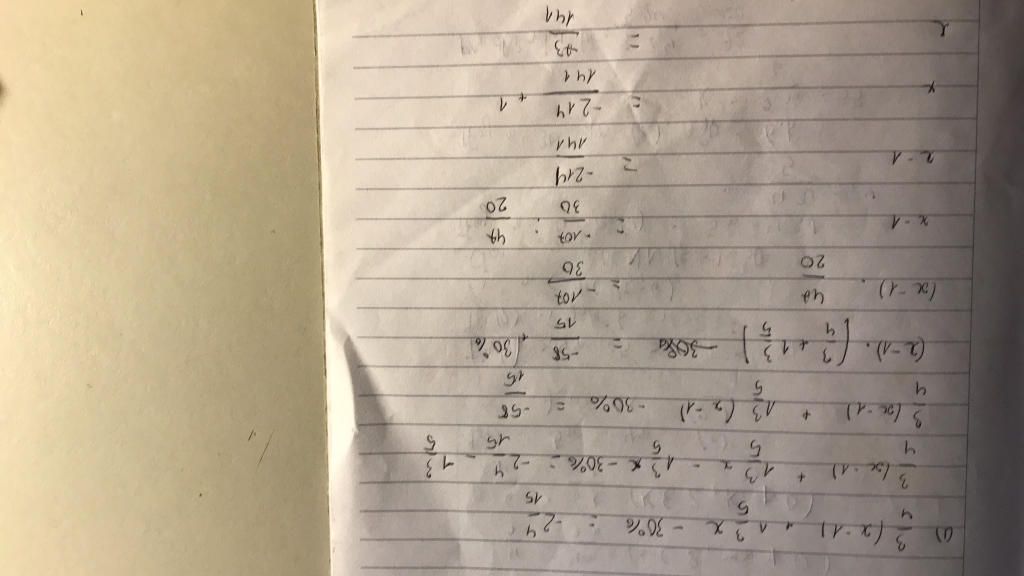 a) 3/4 (x-1) + 1 3/5 x - 30% = -2 4/15
3/4 (x-1) + 1 3/5 x - 1 3/5 - 30% = -2 4/15 - 1 3/5
3/4 (x-1) + 1 3/5 (x-1) - 30% = -58/15
(x-1) . [3/4 + 1 3/5] = -58/15 + 30%
(x-1) . 47/20 = -107/30
x-1 = -107/30 : 47/20
x-1 = -214/141
x = -214/141 + 1
x = -73/141